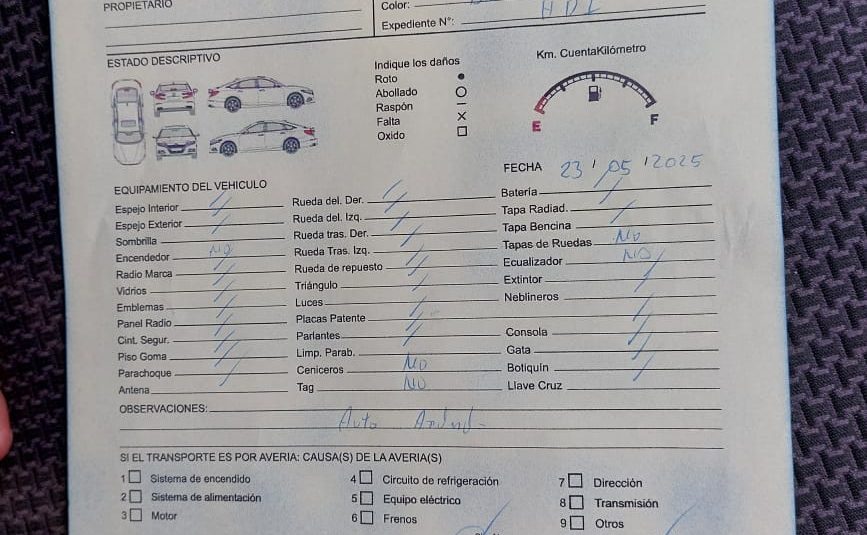 PROPIETARIO
Color:
Expediente N°: HDI
ESTADO DESCRIPTIVO
Indique los daños
Roto ●
Abollado ○
Raspón –
Falta X
Oxido □
Km. CuentaKilómetro
E F
FECHA 23/05/2025
EQUIPAMIENTO DEL VEHICULO
Espejo Interior
Espejo Exterior
Sombrilla
Encendedor NO
Radio Marca
Vidrios
Emblemas
Panel Radio
Cint. Segur.
Piso Goma
Parachoque
Antena
Rueda del. Der.
Rueda del. Izq.
Rueda tras. Der.
Rueda Tras. Izq.
Rueda de repuesto
Triángulo
Luces
Placas Patente
Parlantes
Limp. Parab.
Ceniceros NO
Tag NO
Batería
Tapa Radiad.
Tapa Bencina
Tapas de Ruedas NO
Ecualizador NO
Extintor
Neblineros
Consola
Gata
Botiquín
Llave Cruz
OBSERVACIONES:
Auto
SI EL TRANSPORTE ES POR AVERIA: CAUSA(S) DE LA AVERIA(S)
1 □ Sistema de encendido
2 □ Sistema de alimentación
3 □ Motor
4 □ Circuito de refrigeración
5 □ Equipo eléctrico
6 □ Frenos
7 □ Dirección
8 □ Transmisión
9 □ Otros